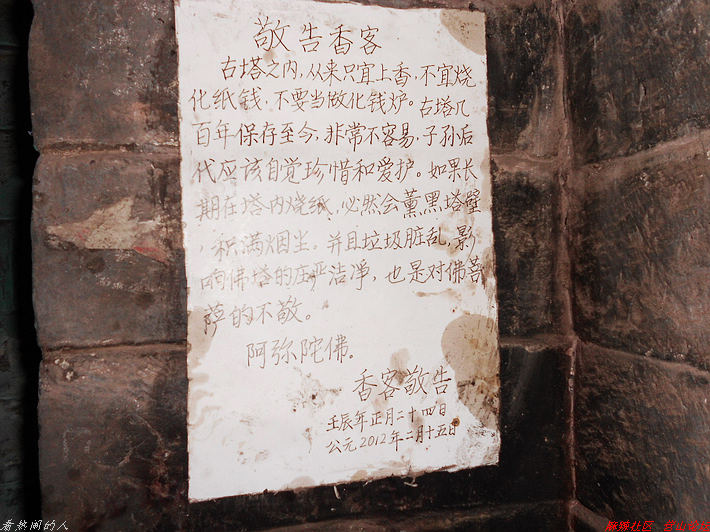 敬告香客
古塔之内,从来只宜上香,不宜烧
化纸钱,不要当做化钱炉。古塔几
百年保存至今,非常不容易,子孙后
代应该自觉珍惜和爱护。如果长
期在塔内烧纸,必然会薰黑塔壁
,积满烟尘。并且垃圾脏乱,影
响佛塔的庄严洁净,也是对佛菩
萨的不敬。
阿弥陀佛。
香客敬告
壬辰年正月二十四日
公元2012年二月十五日
看热闹的人